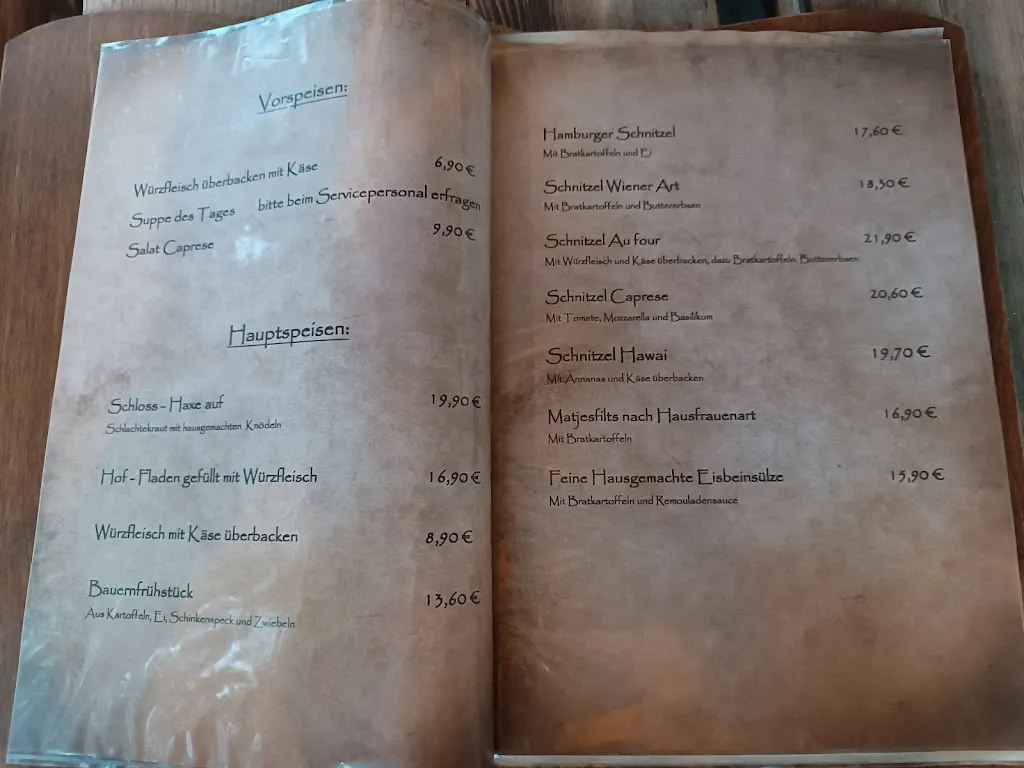 Vorspeisen:
Würzfleisch überbacken mit Käse 6,90 €
Suppe des Tages bitte beim Servicepersonal erfragen
Salat Caprese 9,90 €
Hauptspeisen:
Schloss - Haxe auf 19,90 €
Schlachtekraut mit hausgemachten Knödeln
Hof - Fladen gefüllt mit Würzfleisch 16,90 €
Würzfleisch mit Käse überbacken 8,90 €
Bauernfrühstück 13,60 €
Aus Kartoffeln, Ei, Schinkenspeck und Zwiebeln
Hamburger Schnitzel 17,60 €
Mit Bratkartoffeln und Ei
Schnitzel Wiener Art 18,30 €
Mit Bratkartoffeln und Buttererbsen
Schnitzel Au four 21,90 €
Mit Würzfleisch und Käse überbacken, dazu Bratkartoffeln, Buttererbsen
Schnitzel Caprese 20,60 €
Mit Tomate, Mozzarella und Basilikum
Schnitzel Hawai 19,70 €
Mit Annanas und Käse überbacken
Matjesfilts nach Hausfrauenart 16,90 €
Mit Bratkartoffeln
Feine Hausgemachte Eisbeinsülze 15,90 €
Mit Bratkartoffeln und Remouladensauce